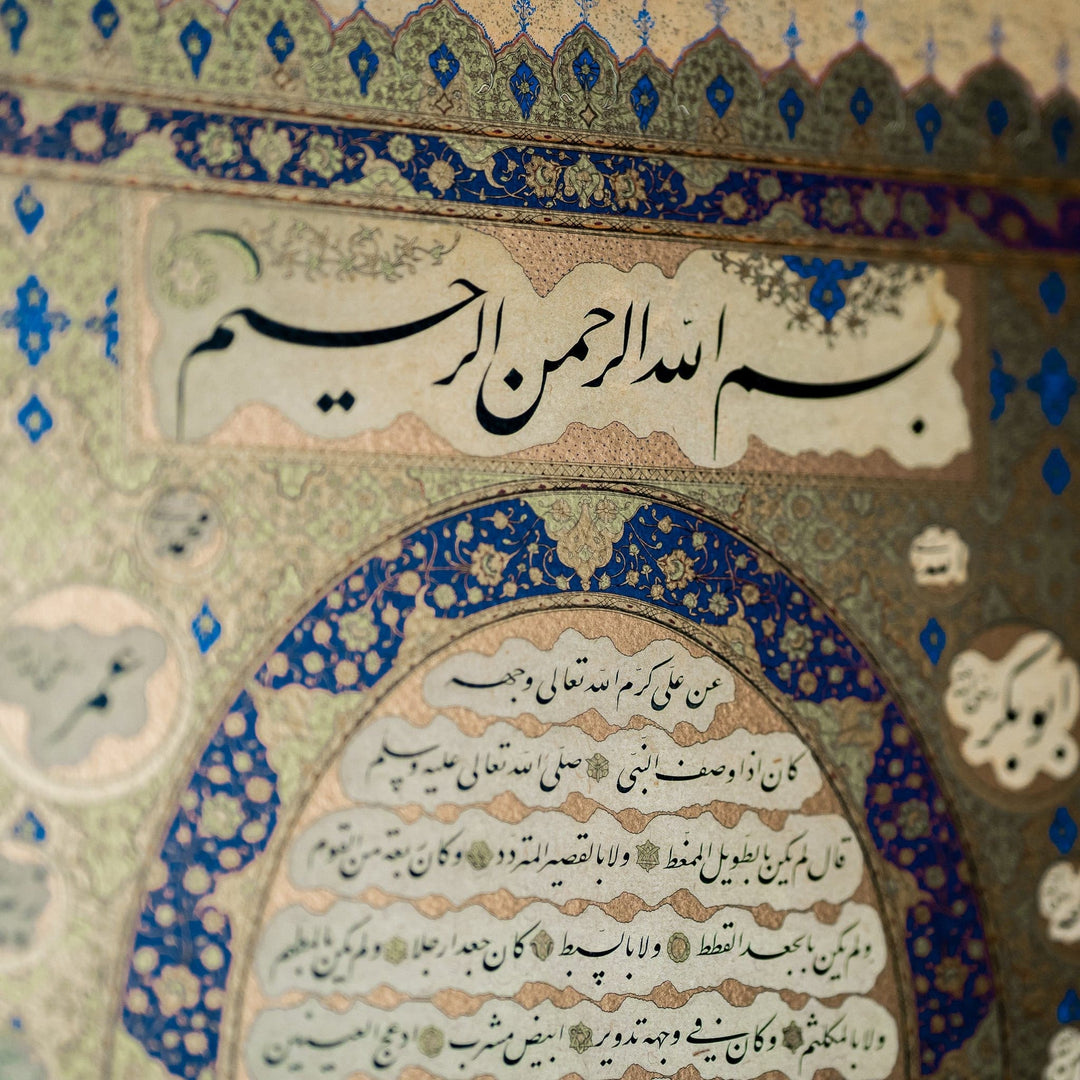 بسم الله الرحمن الرحيم
عن علي كرّم الله تعالى وجهه
كان اذا وصف النبي صلى الله تعالى عليه وسلم
قال لم يكن بالطويل الممغط ولا بالقصير المتردد وكان ربعة من القوم
ولم يكن بالجعد القطط ولا بالسبط كان جعدا رجلا ولم يكن بالمطهم
ولا بالمكلثم وكان في وجهه تدوير ابيض مشرب ادعج العينين
ابو بكر
عمر